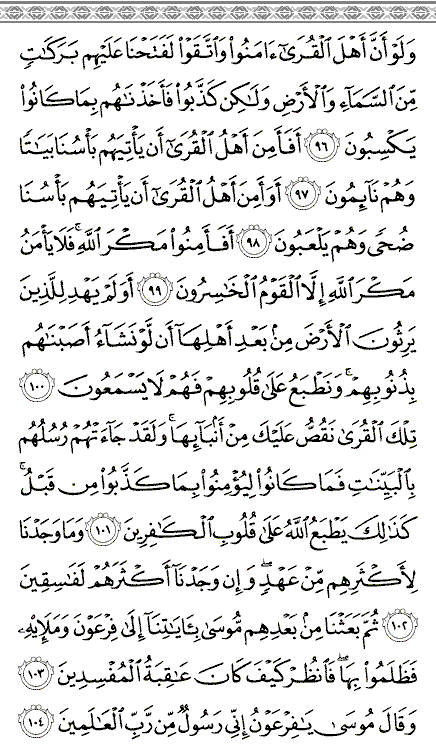 وَلَوْ أَنَّ أَهْلَ ٱلْقُرَىٰٓ ءَامَنُوا۟ وَٱتَّقَوْا۟ لَفَتَحْنَا عَلَيْهِم بَرَكَٰتٍ
مِّنَ ٱلسَّمَآءِ وَٱلْأَرْضِ وَلَٰكِن كَذَّبُوا۟ فَأَخَذْنَٰهُم بِمَا كَانُوا۟
يَكْسِبُونَ ٩٦ أَفَأَمِنَ أَهْلُ ٱلْقُرَىٰٓ أَن يَأْتِيَهُم بَأْسُنَا بَيَٰتًا
وَهُمْ نَآئِمُونَ ٩٧ أَوَأَمِنَ أَهْلُ ٱلْقُرَىٰٓ أَن يَأْتِيَهُم بَأْسُنَا
ضُحًى وَهُمْ يَلْعَبُونَ ٩٨ أَفَأَمِنُوا۟ مَكْرَ ٱللَّهِ ۚ فَلَا يَأْمَنُ
مَكْرَ ٱللَّهِ إِلَّا ٱلْقَوْمُ ٱلْخَٰسِرُونَ ٩٩ أَوَلَمْ يَهْدِ لِلَّذِينَ
يَرِثُونَ ٱلْأَرْضَ مِنۢ بَعْدِ أَهْلِهَآ أَن لَّوْ نَشَآءُ أَصَبْنَٰهُم
بِذُنُوبِهِمْ ۚ وَنَطْبَعُ عَلَىٰ قُلُوبِهِمْ فَهُمْ لَا يَسْمَعُونَ ١٠٠
تِلْكَ ٱلْقُرَىٰ نَقُصُّ عَلَيْكَ مِنْ أَنۢبَآئِهَا ۚ وَلَقَدْ جَآءَتْهُمْ رُسُلُهُم
بِٱلْبَيِّنَٰتِ فَمَا كَانُوا۟ لِيُؤْمِنُوا۟ بِمَا كَذَّبُوا۟ مِن قَبْلُ ۚ
كَذَٰلِكَ يَطْبَعُ ٱللَّهُ عَلَىٰ قُلُوبِ ٱلْكَٰفِرِينَ ١٠١ وَمَا وَجَدْنَا
لِأَكْثَرِهِم مِّنْ عَهْدٍ ۖ وَإِن وَجَدْنَآ أَكْثَرَهُمْ لَفَٰسِقِينَ
١٠٢ ثُمَّ بَعَثْنَا مِنۢ بَعْدِهِم مُّوسَىٰ بِـَٔايَٰتِنَآ إِلَىٰ فِرْعَوْنَ وَمَلَإِي۟هِۦ
فَظَلَمُوا۟ بِهَا ۖ فَٱنظُرْ كَيْفَ كَانَ عَٰقِبَةُ ٱلْمُفْسِدِينَ ١٠٣
وَقَالَ مُوسَىٰ يَٰفِرْعَوْنُ إِنِّى رَسُولٌ مِّن رَّبِّ ٱلْعَٰلَمِينَ ١٠٤